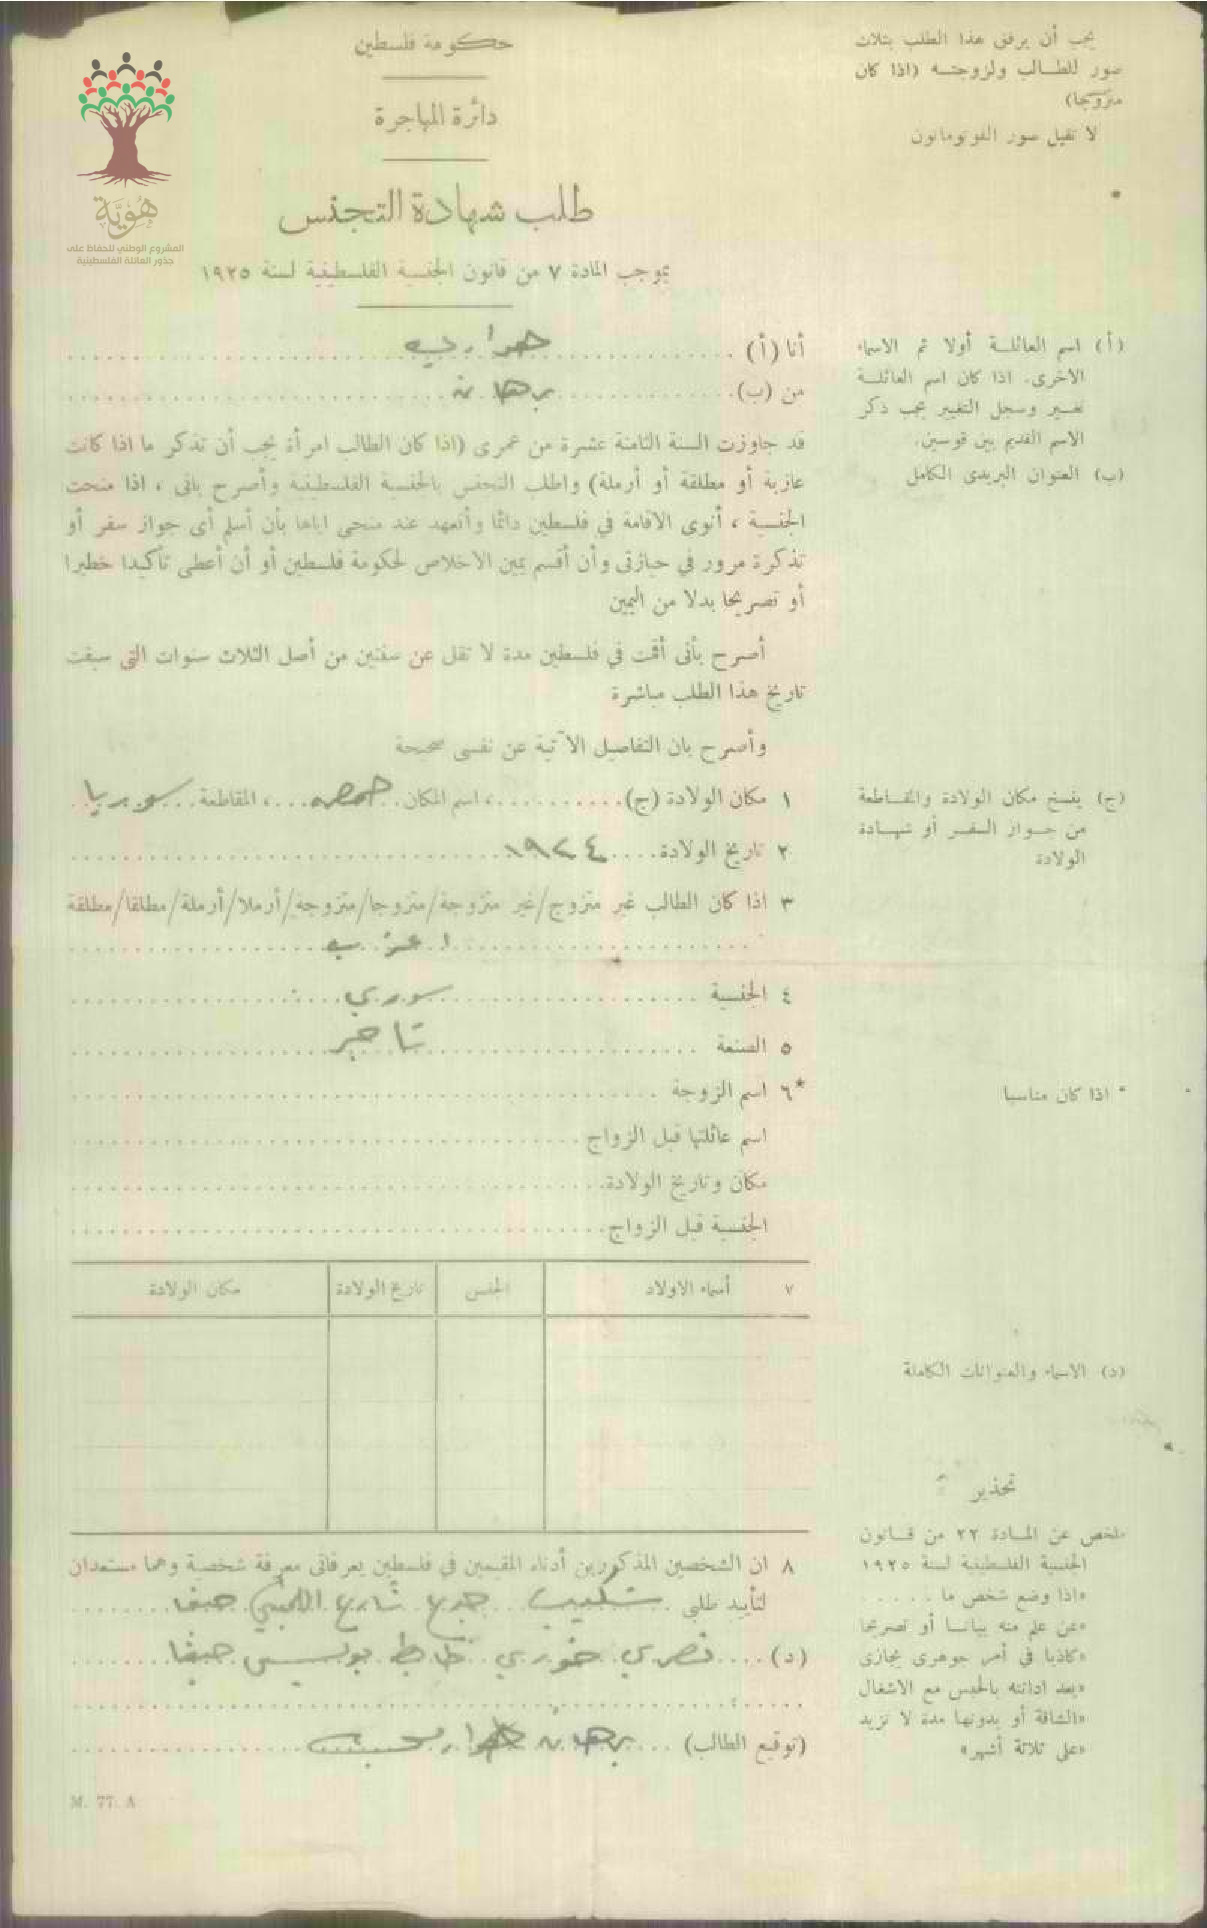 حكومة فلسطين
دائرة المهاجرة
طلب شهادة التجنس
بموجب المادة ٧ من قانون الجنسية الفلسطينية لسنة ١٩٢٥
هُوِيَّة
المشروع الوطني للحفاظ على
جذور العائلة الفلسطينية
يجب أن يرفق هذا الطلب بثلاث
صور للطالب ولزوجته (اذا كان
متزوجا)
لا تقبل صور الفوتوماتون
أنا (أ)
من (ب) برهان
قد جاوزت السنة الثامنة عشرة من عمرى (اذا كان الطالب امرأة يجب أن تذكر ما اذا كانت
عازبة أو مطلقة أو أرملة) واطلب التجنس بالجنسية الفلسطينية وأصرح بانى ، اذا منحت
الجنسية ، أنوى الاقامة في فلسطين دائما وأتعهد عند منحى اياها بأن أسلم أى جواز سفر أو
تذكرة مرور في حيازتى وأن أقسم يمين الاخلاص لحكومة فلسطين أو أن أعطى تأكيدا خطيرا
أو تصريحا بدلا من اليمين
أصرح بأنى أقمت في فلسطين مدة لا تقل عن سنتين من أصل الثلاث سنوات التى سبقت
تاريخ هذا الطلب مباشرة
وأصرح بان التفاصيل الآتية عن نفسى صحيحة
١ مكان الولادة (ج) ، اسم المكان حمص ، المقاطعة سوريا
٢ تاريخ الولادة ١٩٢٤
٣ اذا كان الطالب غير متزوج/غير متزوجة/متزوجا/متزوجة/أرملا/أرملة/مطلقا/مطلقة
اعزب
٤ الجنسية سوري
٥ الصنعة تاجر
*٦ اسم الزوجة
اسم عائلتها قبل الزواج
مكان وتاريخ الولادة
الجنسية قبل الزواج
٧ أسماء الاولاد الجنس تاريخ الولادة مكان الولادة
٨ ان الشخصين المذكورين أدناه المقيمين في فلسطين يعرفانى معرفة شخصية وهما مستعدان
لتأييد طلبى شكيب شارع حيفا
(د) نصري خوري ضابط بوليس حيفا
(توقيع الطالب) برهان
M. 77. A
(أ) اسم العائلة أولا ثم الاسماء
الاخرى. اذا كان اسم العائلة
تغير وسجل التغيير يجب ذكر
الاسم القديم بين قوسين.
(ب) العنوان البريدى الكامل
(ج) ينسخ مكان الولادة والمقاطعة
من جواز السفر أو شهادة
الولادة
* اذا كان مناسبا
(د) الاسماء والعنوانات الكاملة
تحذير
ملخص عن المادة ٢٢ من قانون
الجنسية الفلسطينية لسنة ١٩٢٥
«اذا وضع شخص ما . . . . .
«عن علم منه بيانا أو تصريحا
«كاذبا في أمر جوهرى يجازى
«بعد ادانته بالحبس مع الاشغال
«الشاقة أو بدونها مدة لا تزيد
«على ثلاثة أشهر»